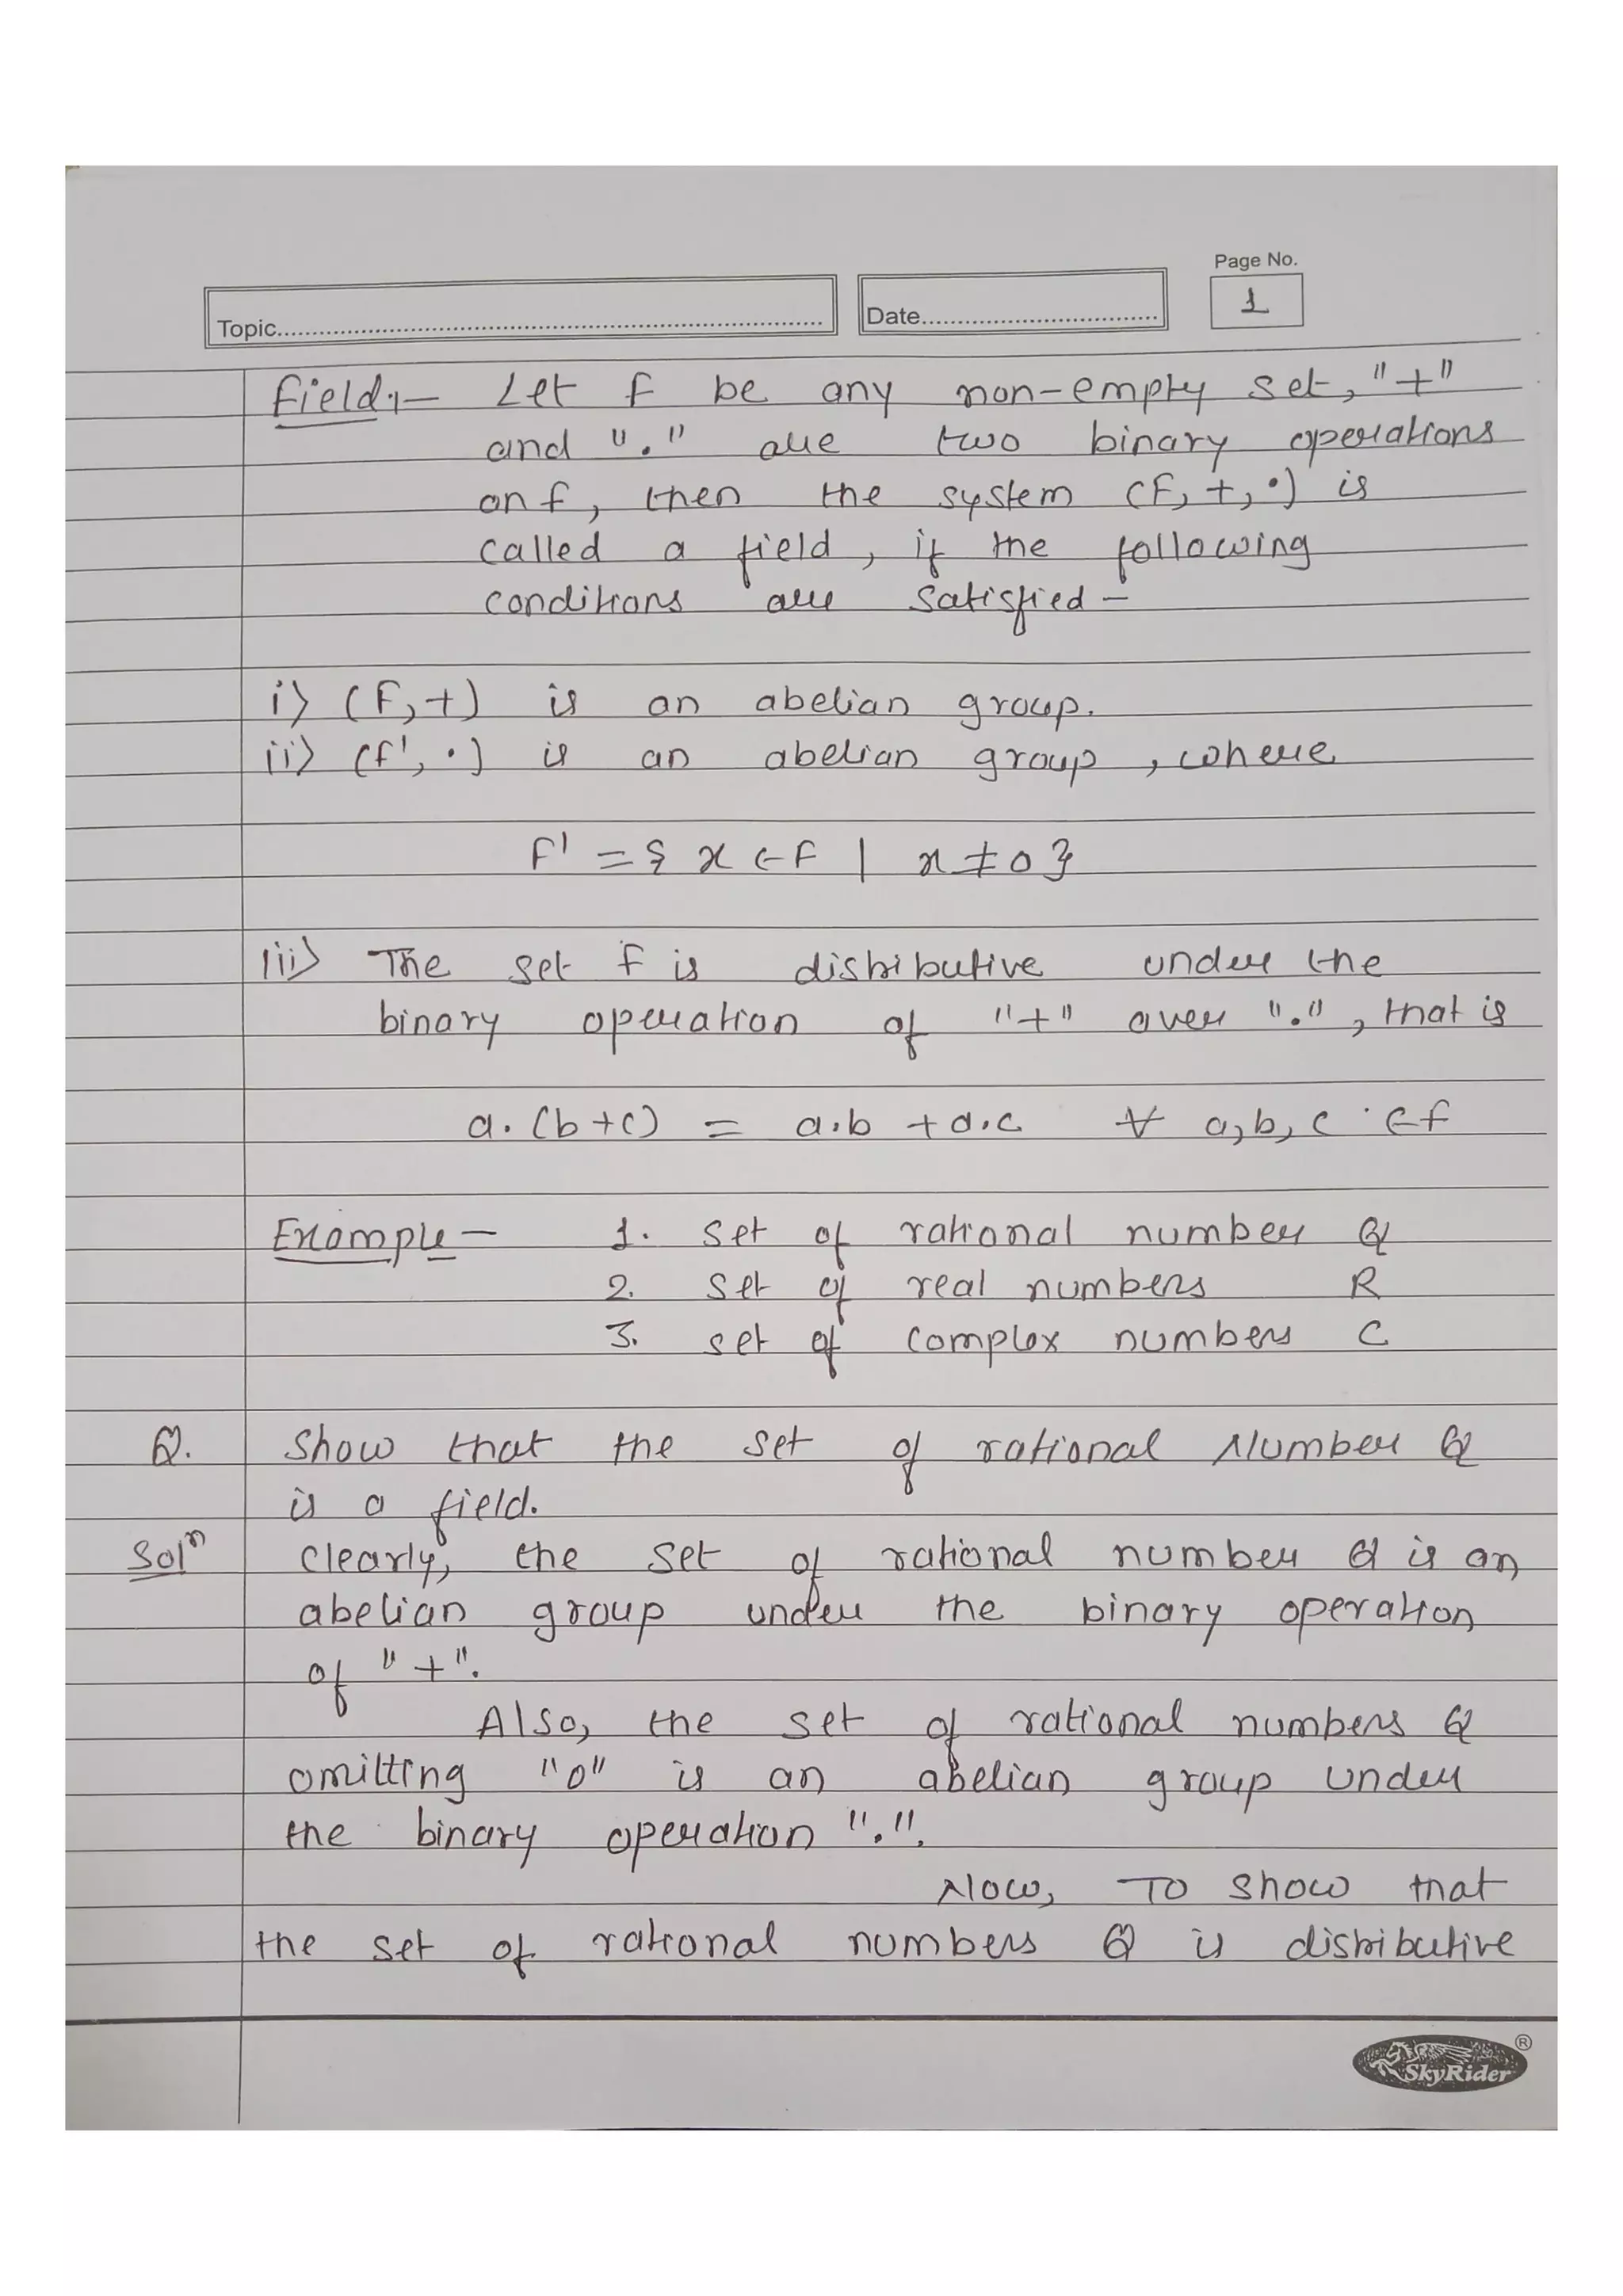 Page No.
Topic.......... Date.......... 1
Field:- Let F be any non-empty set, "+"
and "." are two binary operations
on F, then the system (F, +, •) is
called a field, if the following
conditions are satisfied -
i) (F, +) is an abelian group.
ii) (F', •) is an abelian group, where
F' = { x ∈ F | x ≠ 0 }
iii) The set F is distributive under the
binary operation of "+" over ".", that is
a. (b+c) = a.b + a.c ∀ a, b, c ∈ F
Example - 1. set of rational number Q
2. set of real numbers R
3. set of complex numbers C
Q. Show that the set of rational Number Q
is a field.
Solⁿ Clearly, the set of rational number Q is an
abelian group under the binary operation
of "+".
Also, the set of rational numbers Q
omitting "0" is an abelian group under
the binary operation ".".
Now, To show that
the set of rational numbers Q is distributive
SkyRider ®